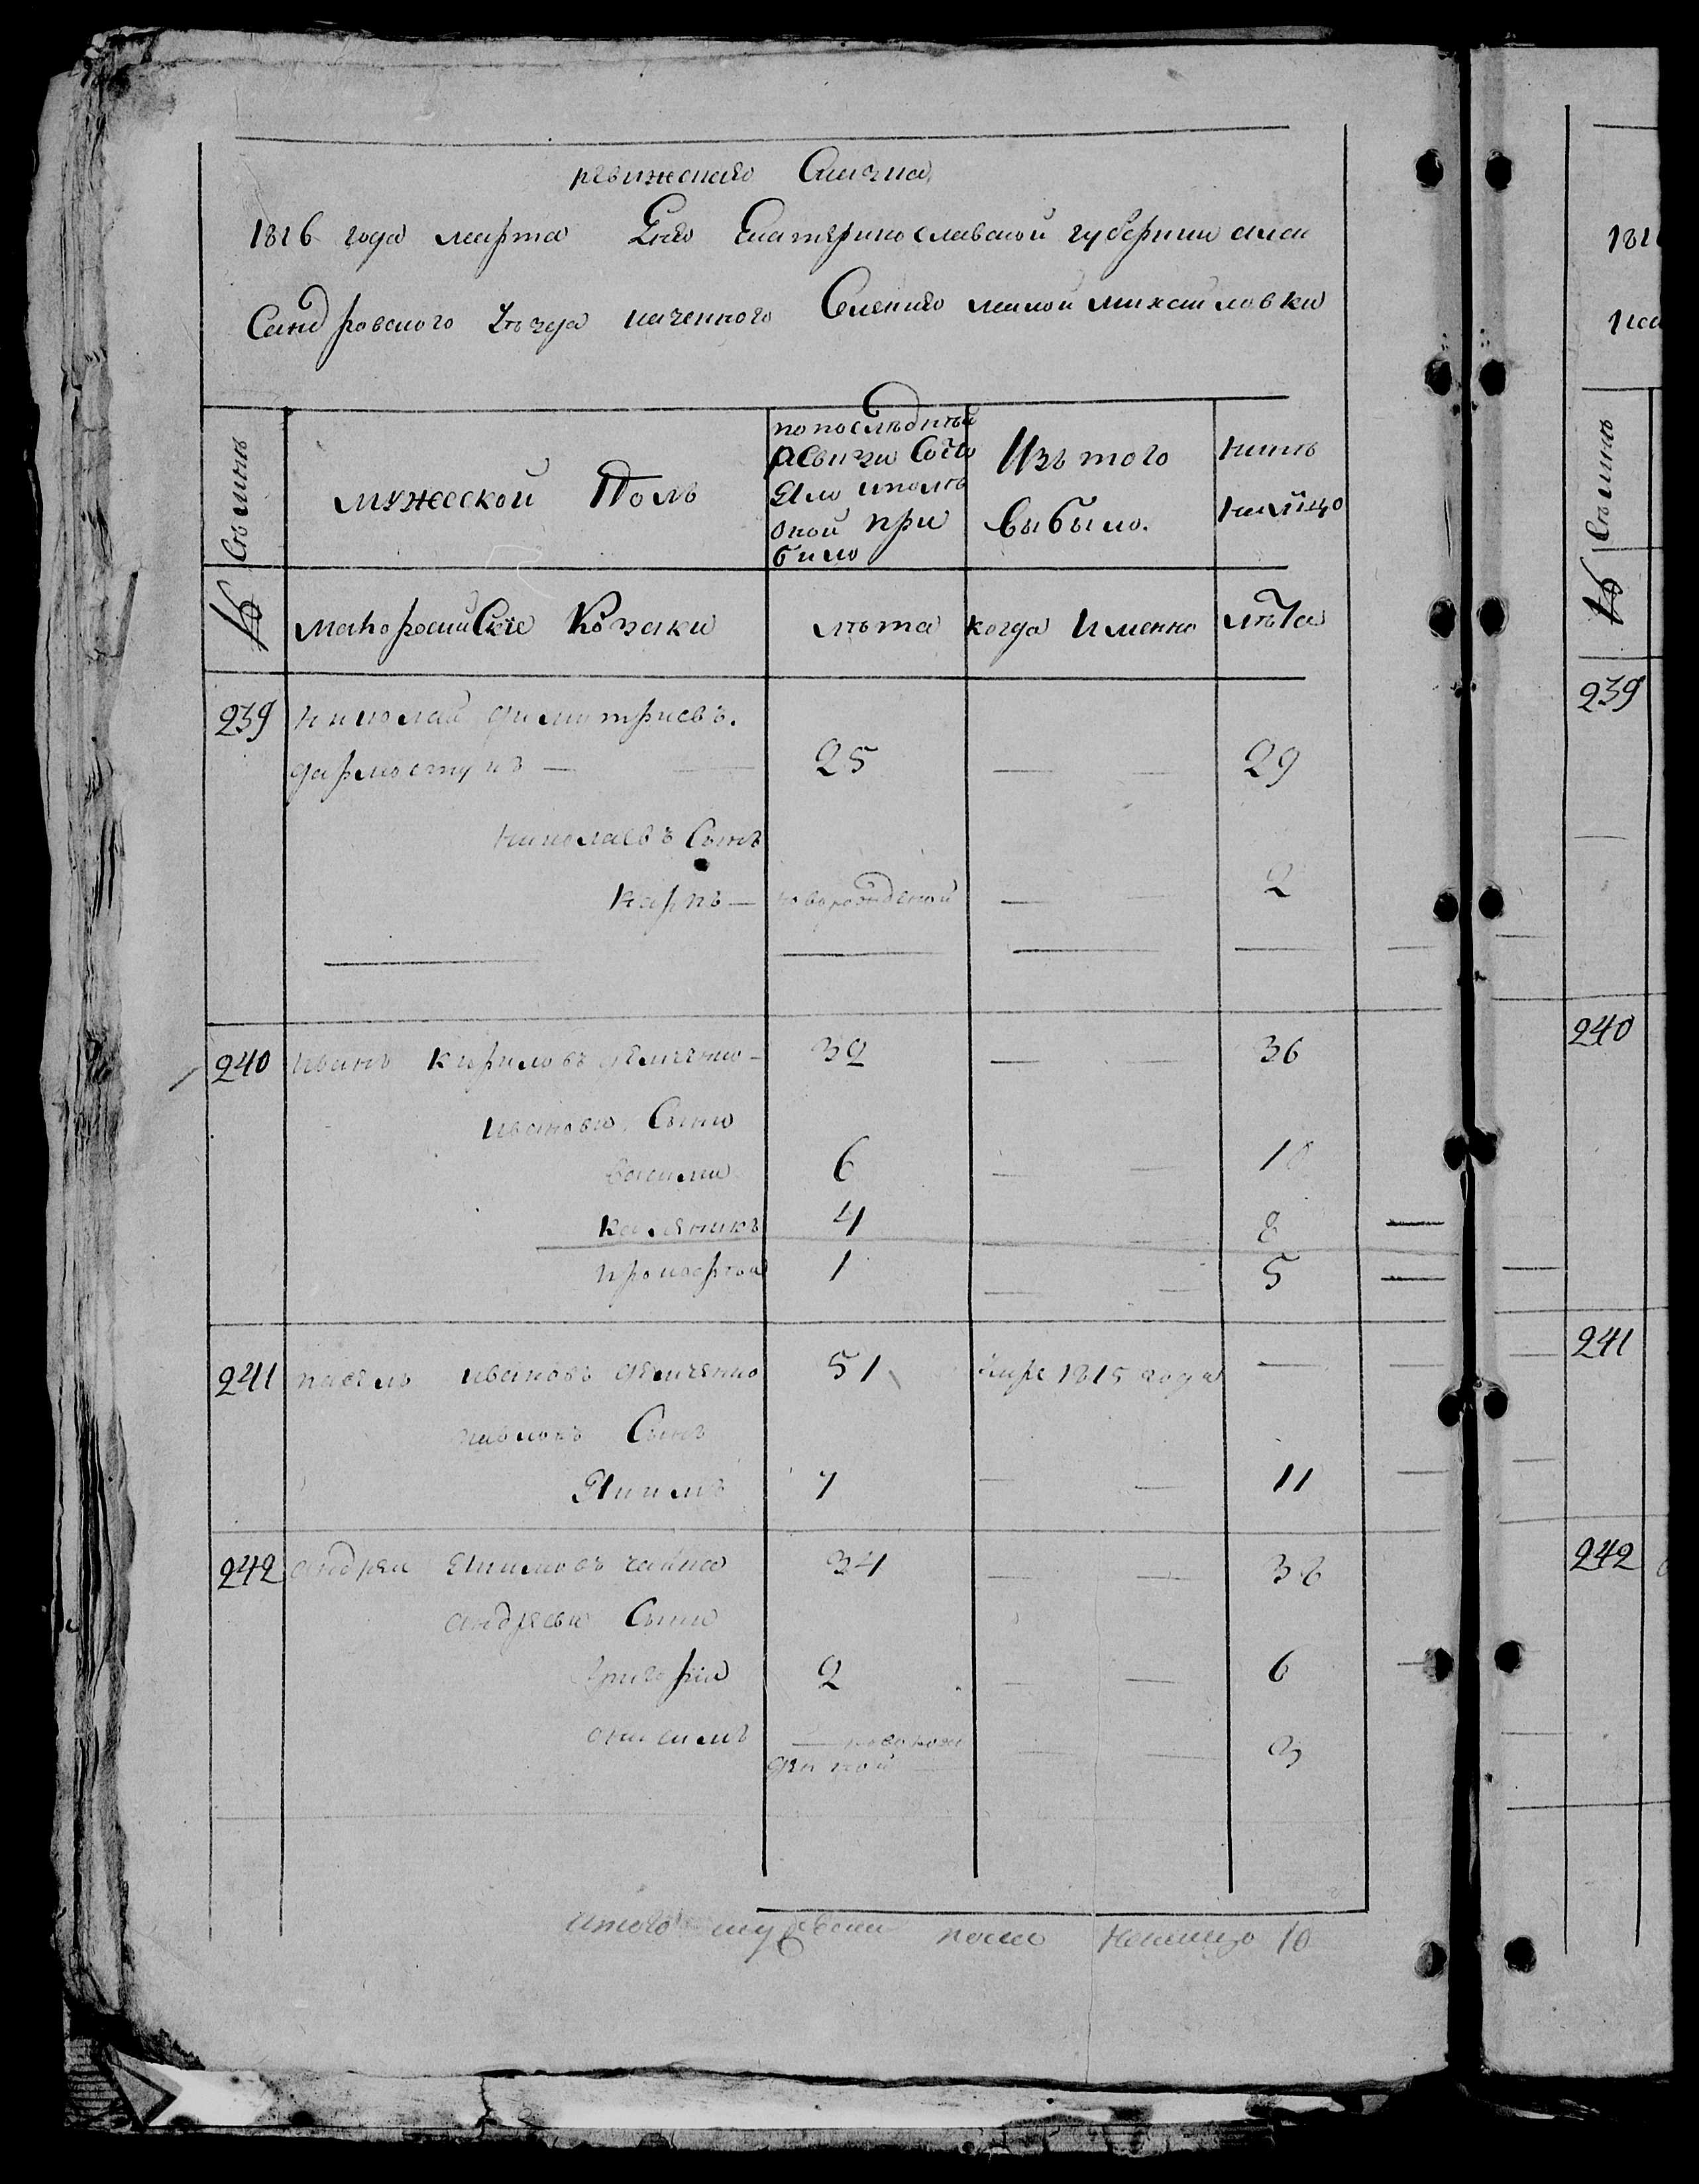 ревижская Сказка
1816 года марта дня Екатеринославской губернии алек
Сандровского уезда казенного Селения малой михайловки
Семьи
мужеской Полъ
по последней
ревизи Состо
яло и после
оной при
было
Изъ того
выбыло.
ныне
на лицо
№
малороссийскiе Козаки
лета
когда Именно
лета
239
николай димитриевъ.
25
—
29
николаевъ Сынъ
Карпъ —
новорожденой
—
2
240
иванъ Кириловъ демченко
32
—
36
ивановы Сыны
василий
6
—
10
каленикъ
4
8
прокофей
1
—
5
241
павелъ ивановъ демченко
51
умре 1815 года
—
павловъ Сынъ
Якимъ
7
—
11
242
андрей Якимовъ чайка
34
—
38
андреевы Сыны
григорiй
2
—
6
онисимъ
новорож
деной
—
3
итого мужеска пола налицо 10
1816
Семьи
№
239
240
241
242